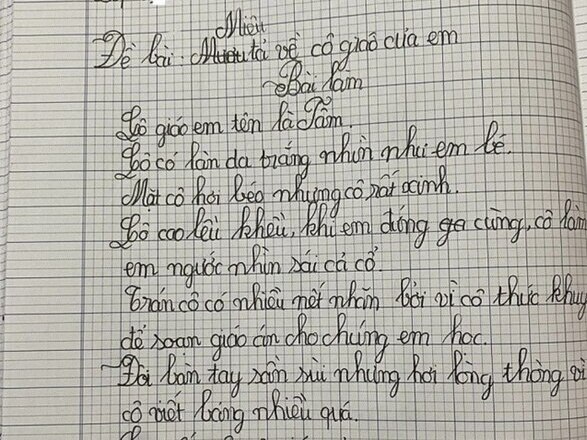 Miêu
Đề bài: Mươu tả về cô giáo của em
Bài làm
Cô giáo em tên là Tâm.
Cô có làn da trắng nhìn như em bé.
Mặt cô hơi béo nhưng cô rất xinh.
Cô cao lêu khêu, khi em đứng gần cùng, cô làm
em ngước nhìn sái cả cổ.
Trán cô có nhiều nết nhăn bởi vì cô thức khuy
để soạn giáo án cho chúng em học.
Đôi bàn tay sần sùi nhưng hơi lòng thòng vì
cô viết bảng nhiều quá.